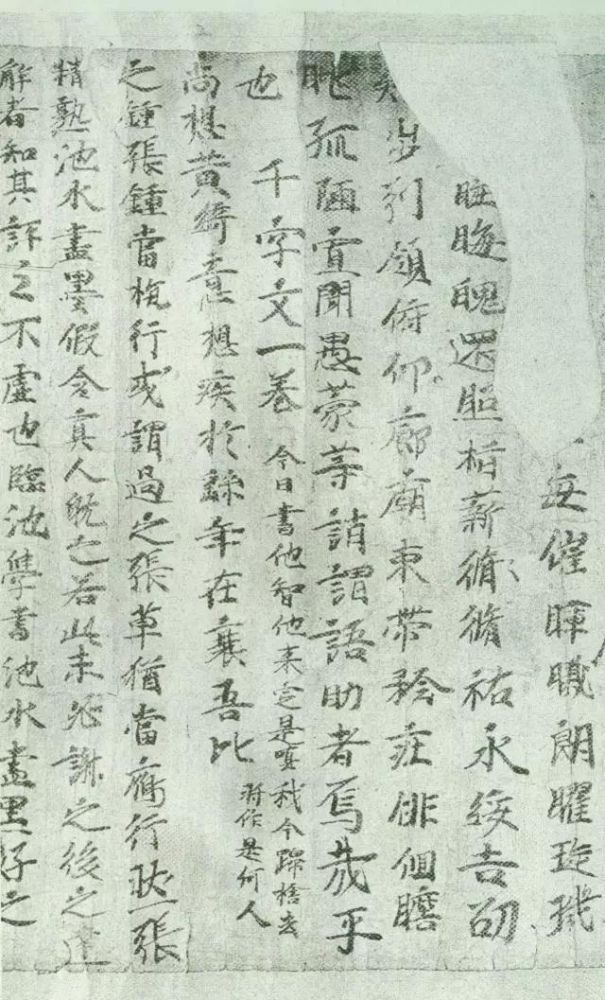 每催暉曦朗曜琁璣
晦魄還照指薪脩脩祐永綏吉劭
步引領俯仰廊廟束帶矜庄俳佪瞻
眺孤陋寡聞愚蒙等誚謂語助者焉哉乎
也 千字文一卷 今日書他智他來定是嗔我今歸捨去
將作是何人
尚想黃綺意想疾於繇年在襄吾比
之鍾張鍾當抗行或謂過之張草猶當鴈行然張
精熟池水盡墨假令真人耽之若此未必謝之後之達
解者知其評之不虛也臨池學書池水盡墨好之